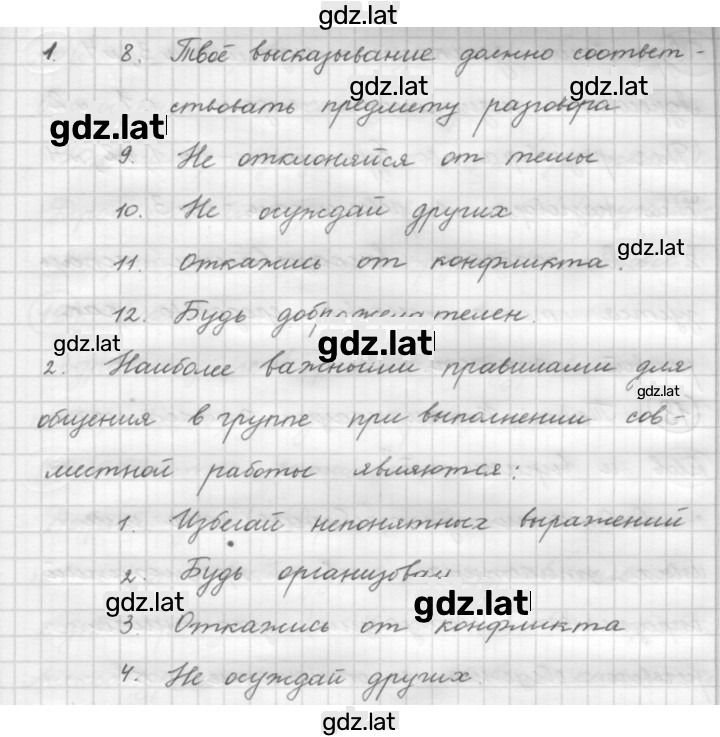 gdz.lat
1. 8. Твоё высказывание должно соответ-
gdz.lat gdz.lat
ствовать предмету разговора
gdz.lat
9. Не отклоняйся от темы
10. Не осуждай других
gdz.lat
11. Откажись от конфликта.
12. Будь доброжелателен.
gdz.lat gdz.lat
2. Наиболее важными правилами для
gdz.lat
общения в группе при выполнении сов-
местной работы являются:
1. Избегай непонятных выражений
2. Будь организован
gdz.lat gdz.lat
3. Откажись от конфликта
4. Не осуждай других.
gdz.lat